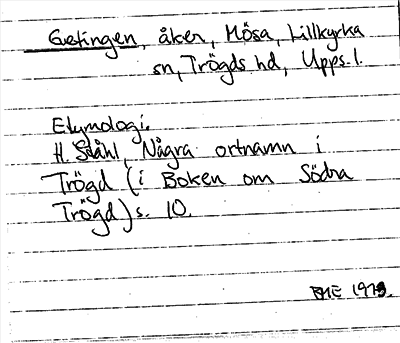 Getingen, åker, Mösa, Lillkyrka
sn, Trögds hd, Upps. l.
Etymologi:
H. Ståhl, Några ortnamn i
Trögd (i Boken om Södra
Trögd) s. 10.